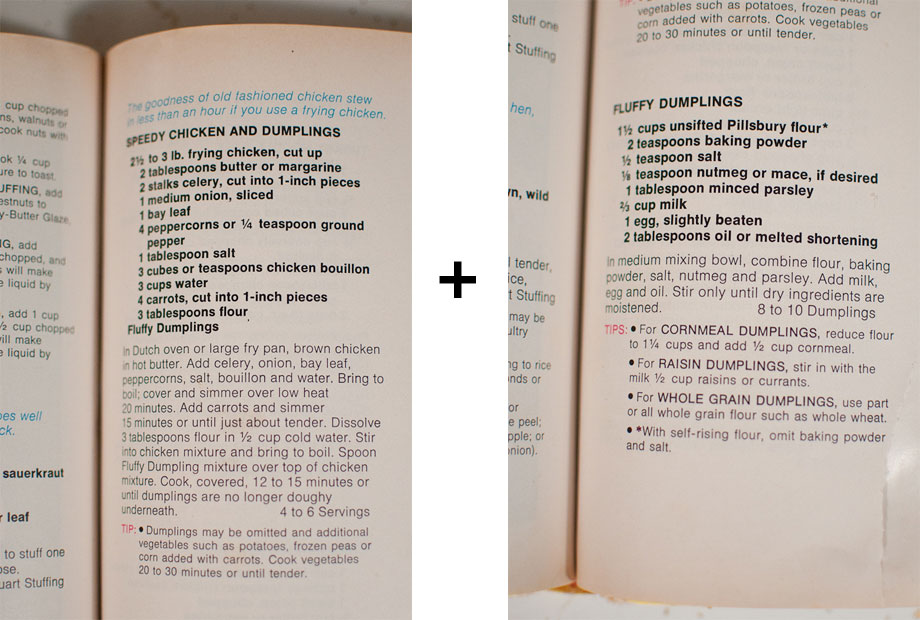 cup chopped
walnuts or
cook nuts with
¼ cup
to toast.
UFFING, add
estnuts to
y-Butter Glaze,
NG, add
chopped, and
s will make
e liquid by
, add 1 cup
½ cup chopped
will make
e liquid by
oes well
ck.
sauerkraut
r leaf
to stuff one
ose.
uart Stuffing
The goodness of old fashioned chicken stew
in less than an hour if you use a frying chicken.
SPEEDY CHICKEN AND DUMPLINGS
2½ to 3 lb. frying chicken, cut up
2 tablespoons butter or margarine
2 stalks celery, cut into 1-inch pieces
1 medium onion, sliced
1 bay leaf
4 peppercorns or ¼ teaspoon ground
pepper
1 tablespoon salt
3 cubes or teaspoons chicken bouillon
3 cups water
4 carrots, cut into 1-inch pieces
3 tablespoons flour
Fluffy Dumplings
In Dutch oven or large fry pan, brown chicken
in hot butter. Add celery, onion, bay leaf,
peppercorns, salt, bouillon and water. Bring to
boil; cover and simmer over low heat
20 minutes. Add carrots and simmer
15 minutes or until just about tender. Dissolve
3 tablespoons flour in ½ cup cold water. Stir
into chicken mixture and bring to boil. Spoon
Fluffy Dumpling mixture over top of chicken
mixture. Cook, covered, 12 to 15 minutes or
until dumplings are no longer doughy
underneath. 4 to 6 Servings
TIP: • Dumplings may be omitted and additional
vegetables such as potatoes, frozen peas or
corn added with carrots. Cook vegetables
20 to 30 minutes or until tender.
+
stuff one
t Stuffing
hen,
n, wild
tender,
ice,
t Stuffing
may be
ultry
ng to rice
nds or
or
e peel;
pple; or
onion).
vegetables such as potatoes, frozen peas or
corn added with carrots. Cook vegetables
20 to 30 minutes or until tender.
FLUFFY DUMPLINGS
1½ cups unsifted Pillsbury flour*
2 teaspoons baking powder
½ teaspoon salt
⅛ teaspoon nutmeg or mace, if desired
1 tablespoon minced parsley
⅔ cup milk
1 egg, slightly beaten
2 tablespoons oil or melted shortening
In medium mixing bowl, combine flour, baking
powder, salt, nutmeg and parsley. Add milk,
egg and oil. Stir only until dry ingredients are
moistened. 8 to 10 Dumplings
TIPS: • For CORNMEAL DUMPLINGS, reduce flour
to 1¼ cups and add ½ cup cornmeal.
• For RAISIN DUMPLINGS, stir in with the
milk ½ cup raisins or currants.
• For WHOLE GRAIN DUMPLINGS, use part
or all whole grain flour such as whole wheat.
• *With self-rising flour, omit baking powder
and salt.